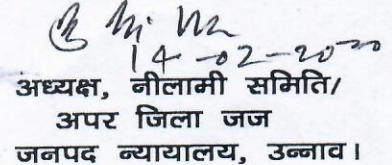 14-02-2020
अध्यक्ष, नीलामी समिति/
अपर जिला जज
जनपद न्यायालय, उन्नाव।